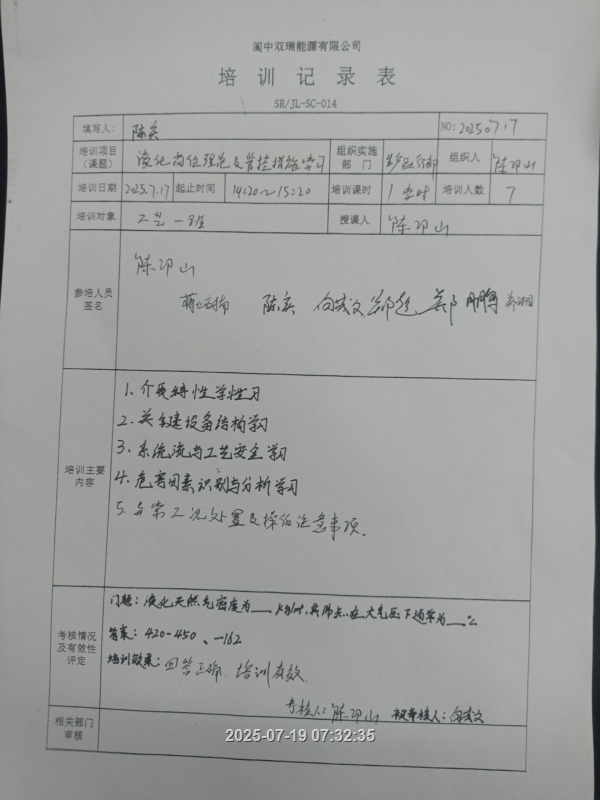 阆中双瑞能源有限公司
培训记录表
SR/JL-SC-014
填写人： 陈宾 NO: 20250717
培训项目（课题） 液化岗位理论及管控措施学习 组织实施部门 生产运行部 组织人 陈邛山
培训日期 2025.7.17 起止时间 14:20~15:20 培训课时 1学时 培训人数 7
培训对象 工艺一班 授课人 陈邛山
参培人员签名
陈邛山
陈宾 向成文 郑 郑鹏
培训主要内容
1. 介质特性学性习
2. 关键设备结构学习
3. 系统流与工艺安全学习
4. 危害因素识别与分析学习
5. 异常工况处置及操作注意事项.
考核情况及有效性评定
门题：液化天然气密度为___kg/m³,其沸点在大气压下通常为___℃
答案：420-450、-162
培训效果：回答正确，培训有效.
考核人：陈邛山 被考核人：向成文
相关部门审核
2025-07-19 07:32:35